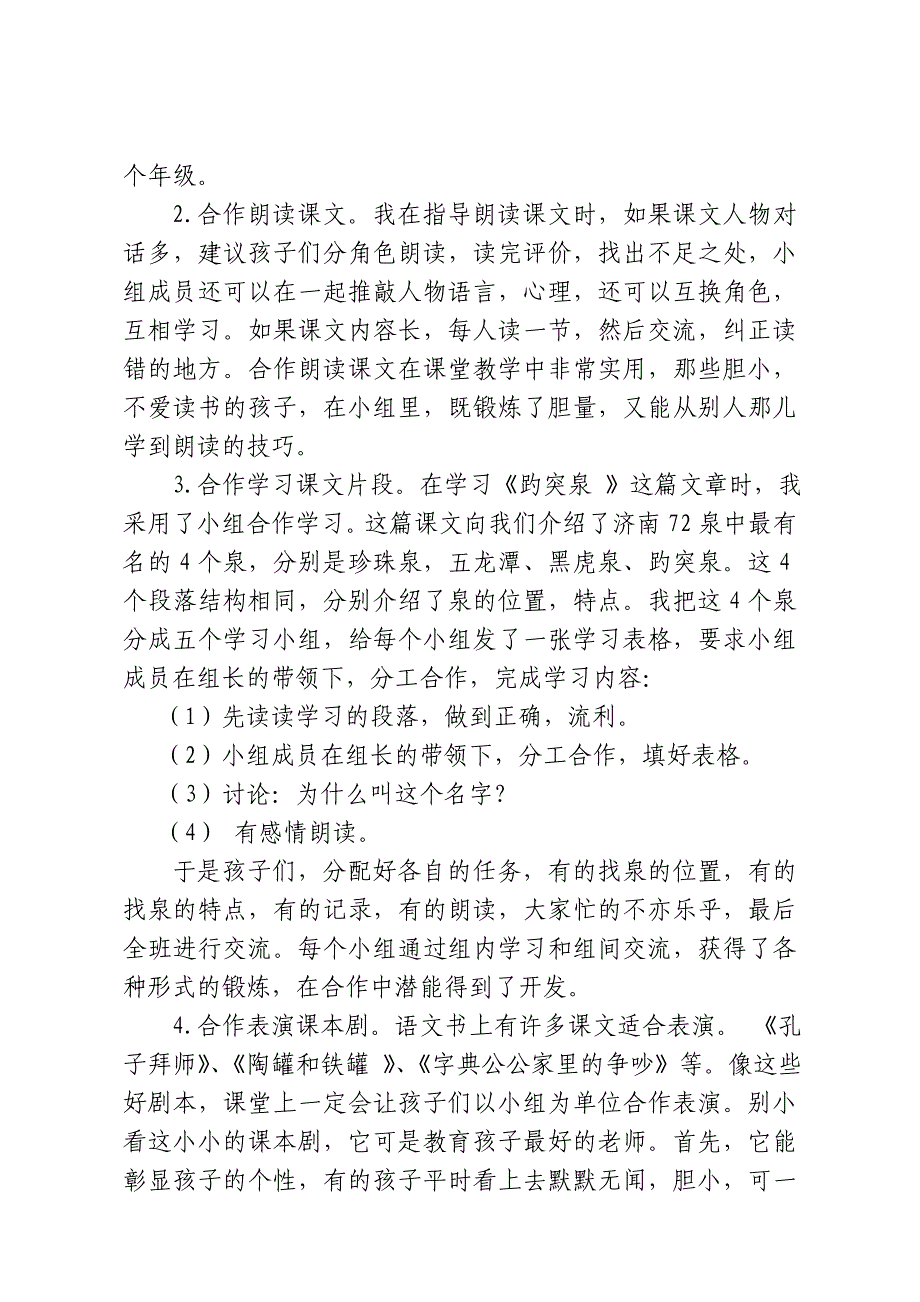 个年级。
2.合作朗读课文。我在指导朗读课文时，如果课文人物对
话多，建议孩子们分角色朗读，读完评价，找出不足之处，小
组成员还可以在一起推敲人物语言，心理，还可以互换角色，
互相学习。如果课文内容长，每人读一节，然后交流，纠正读
错的地方。合作朗读课文在课堂教学中非常实用，那些胆小，
不爱读书的孩子，在小组里，既锻炼了胆量，又能从别人那儿
学到朗读的技巧。
3.合作学习课文片段。在学习《趵突泉 》这篇文章时，我
采用了小组合作学习。这篇课文向我们介绍了济南 72 泉中最有
名的 4 个泉，分别是珍珠泉，五龙潭、黑虎泉、趵突泉。这 4
个段落结构相同，分别介绍了泉的位置，特点。我把这 4 个泉
分成五个学习小组，给每个小组发了一张学习表格，要求小组
成员在组长的带领下，分工合作，完成学习内容：
（1）先读读学习的段落，做到正确，流利。
（2）小组成员在组长的带领下，分工合作，填好表格。
（3）讨论：为什么叫这个名字？
（4） 有感情朗读。
于是孩子们，分配好各自的任务，有的找泉的位置，有的
找泉的特点，有的记录，有的朗读，大家忙的不亦乐乎，最后
全班进行交流。每个小组通过组内学习和组间交流，获得了各
种形式的锻炼，在合作中潜能得到了开发。
4.合作表演课本剧。语文书上有许多课文适合表演。 《孔
子拜师》、《陶罐和铁罐 》、《字典公公家里的争吵》等。像这些
好剧本，课堂上一定会让孩子们以小组为单位合作表演。别小
看这小小的课本剧，它可是教育孩子最好的老师。首先，它能
彰显孩子的个性，有的孩子平时看上去默默无闻，胆小，可一